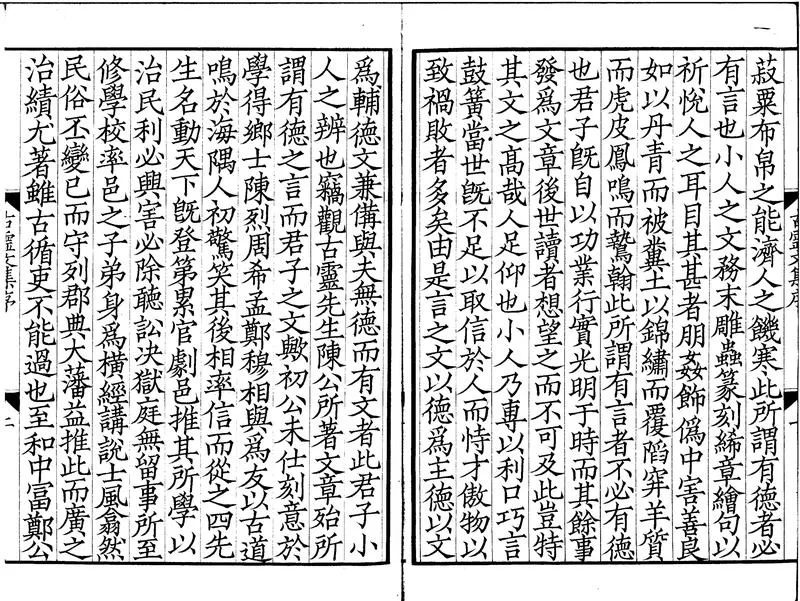 菽粟布帛之能濟人之饑寒此所謂有德者必
有言也小人之文務末雕蟲篆刻絺章繪句以
祈悅人之耳目其甚者朋姦飾偽中害善良
如以丹青而被糞土以錦繡而覆陷穽羊質
而虎皮鳳鳴而鷙翰此所謂有言者不必有德
也君子旣自以功業行實光明于時而其餘事
發爲文章後世讀者想望之而不可及此豈特
其文之高哉人足仰也小人乃專以利口巧言
鼓簧當世旣不足以取信於人而恃才傲物以
致禍敗者多矣由是言之文以德爲主德以文
爲輔德文兼備與夫無德而有文者此君子小
人之辨也竊觀古靈先生陳公所著文章始所
謂有德之言而君子之文歟初公未仕刻意於
學得鄉士陳烈周希孟鄭穆相與爲友以古道
鳴於海隅人初驚笑其後相率信而從之四先
生名動天下旣登第累官劇邑推其所學以
治民利必興害必除聽訟決獄庭無留事所至
修學校率邑之子弟身爲橫經講說士風翕然
民俗丕變已而守列郡典大藩益推此而廣之
治績尤著雖古循吏不能過也至和中富鄭公
古靈文集序
一
古靈文集序
二
一